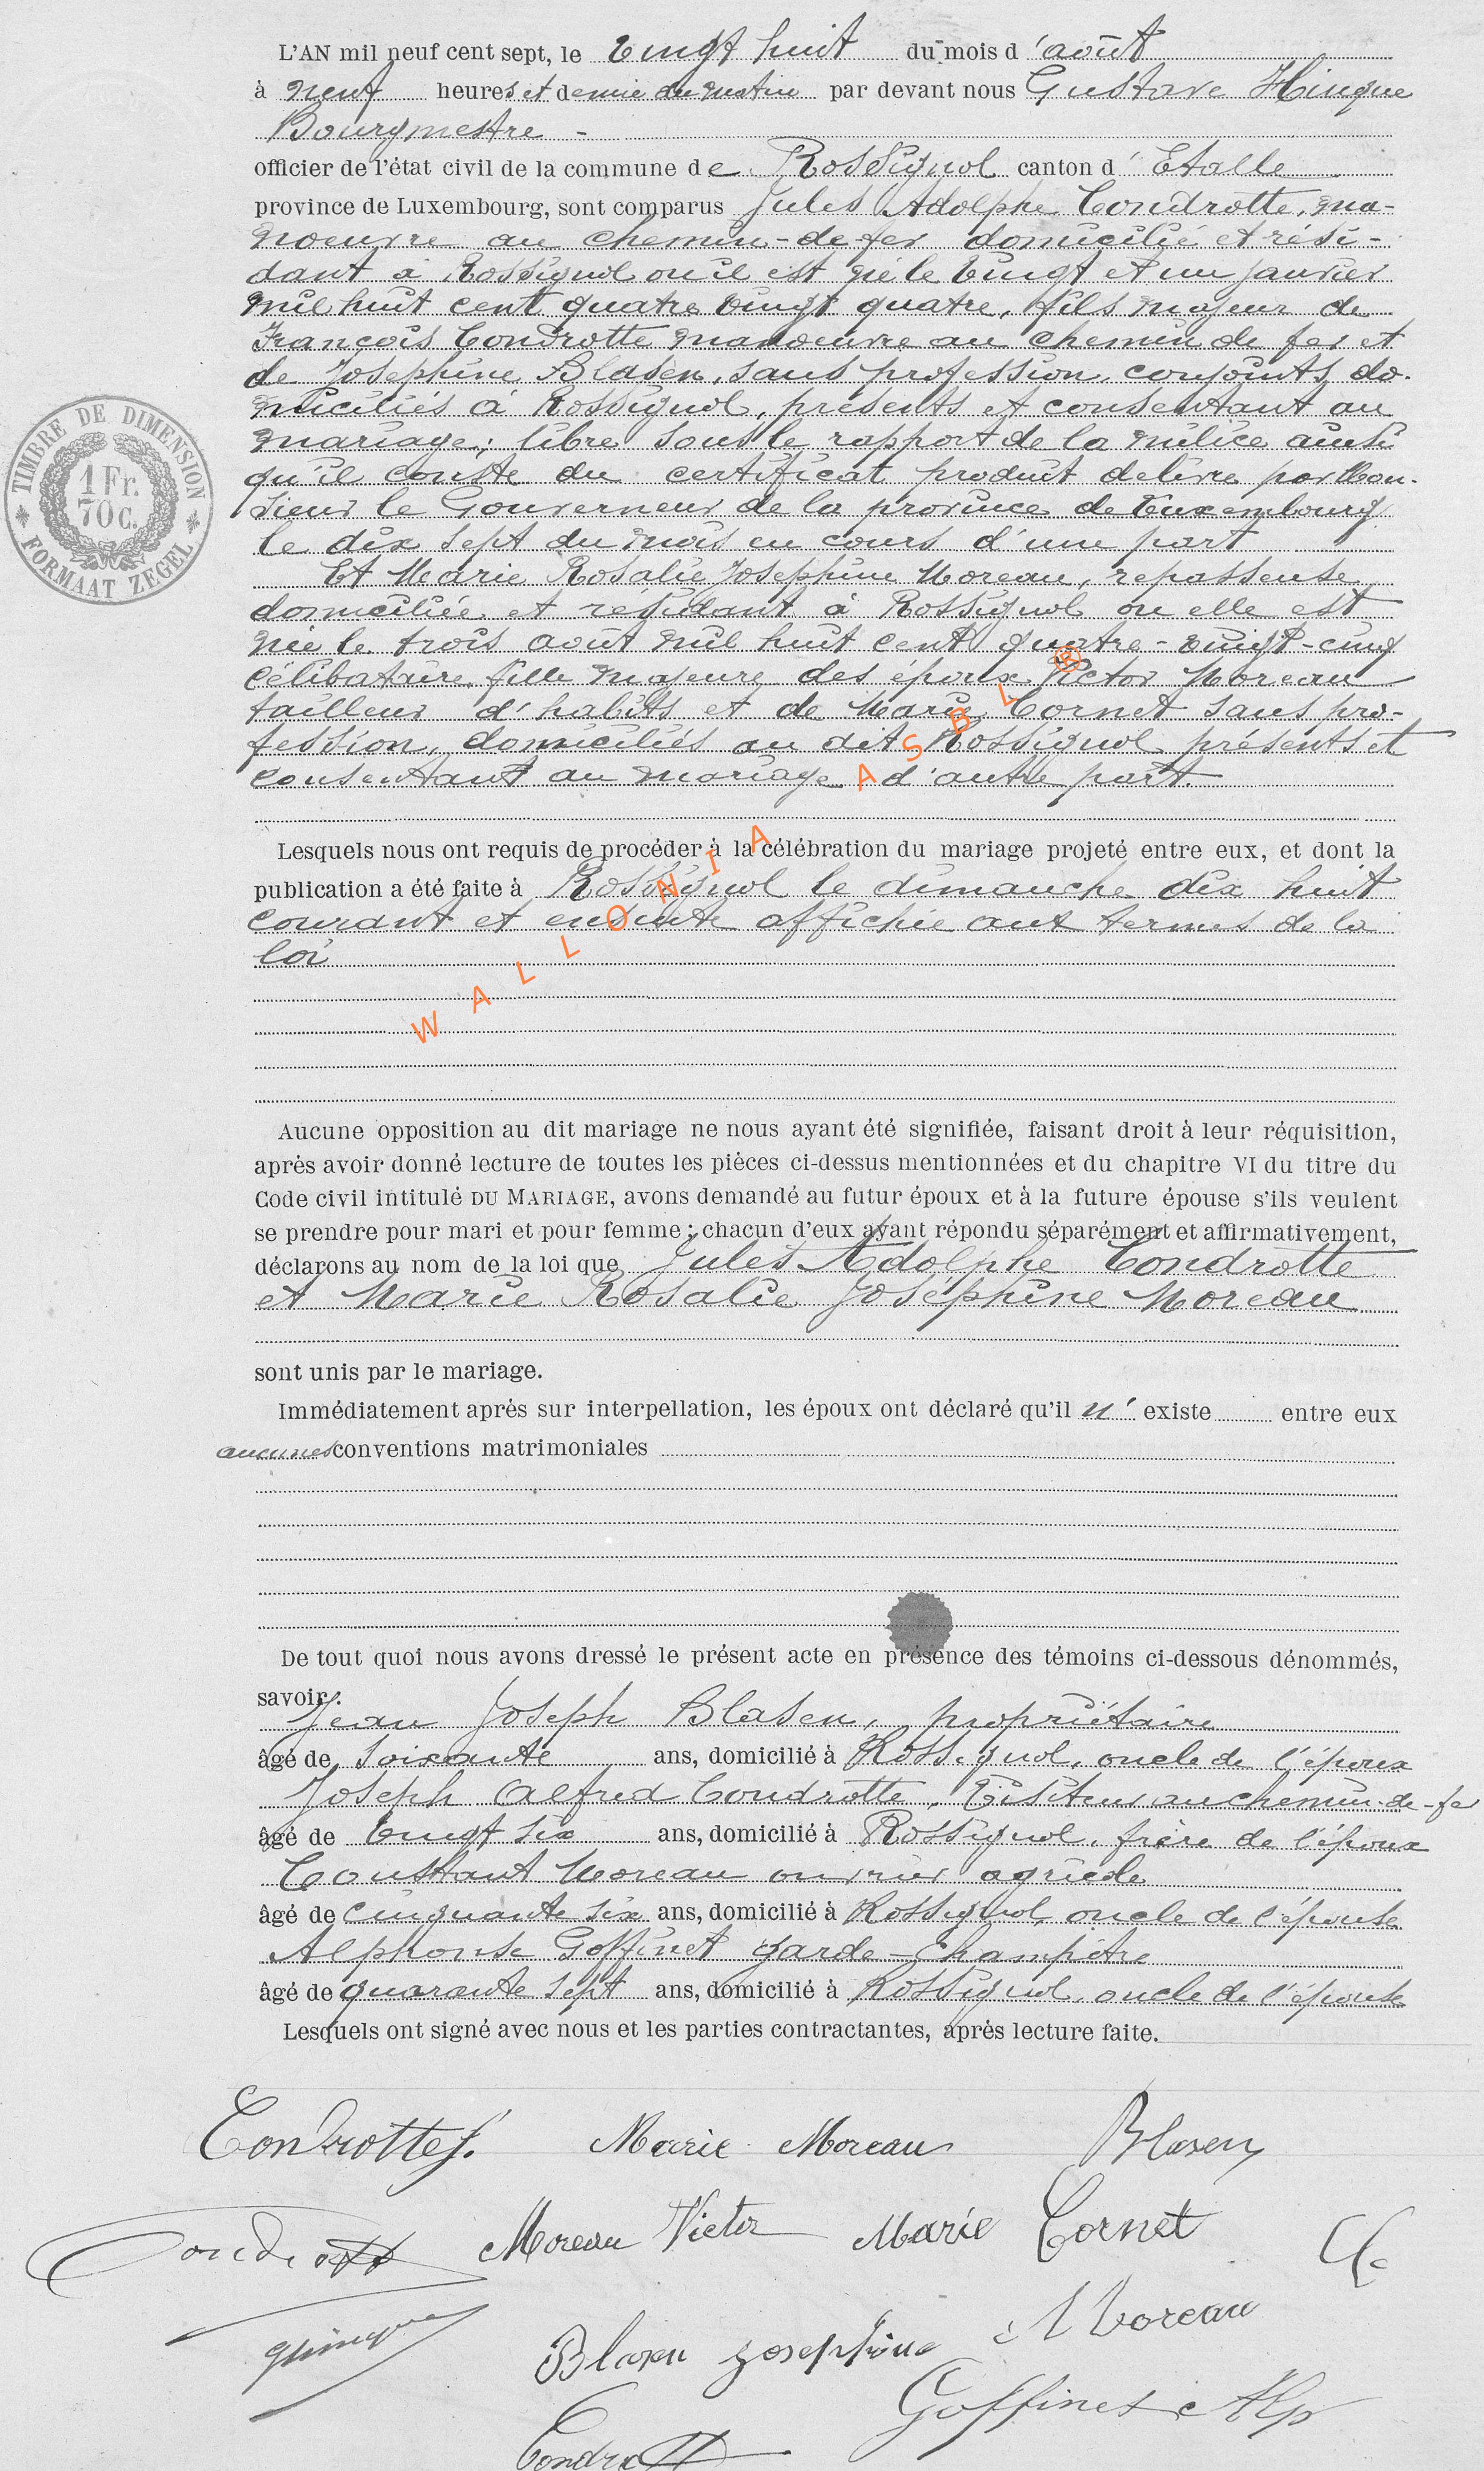 L'AN mil neuf cent sept, le vingt huit du mois d'août
à neuf heures et demie du matin par devant nous Gustave Hinque
Bourgmestre -
officier de l'état civil de la commune de Rossignol canton d'Etalle
province de Luxembourg, sont comparus Jules Adolphe Condrotte, ma-
noeuvre au chemin-de-fer domicilié et rési-
dant à Rossignol où il est né le vingt et un janvier
mil huit cent quatre vingt quatre, fils majeur de
François Condrotte manoeuvre au chemin de fer et
de Joséphine Blasen, sans profession, conjoints do-
miciliés à Rossignol, présents et consentant au
mariage; libre sous le rapport de la milice ainsi
qu'il conste du certificat produit délivré par Mon-
sieur le Gouverneur de la province de Luxembourg
le dix sept du mois en cours d'une part
Et Marie Rosalie Joséphine Moreau, repasseuse
domiciliée et résidant à Rossignol ou elle est
née le trois août mil huit cent quatre-vingt-cinq
célibataire, fille majeure des époux Victor Moreau
tailleur d'habits et de Marie Cornet sans pro-
fession, domiciliés au dit Rossignol présents et
consentant au mariage d'autre part.
Lesquels nous ont requis de procéder à la célébration du mariage projeté entre eux, et dont la
publication a été faite à Rossignol le dimanche dix huit
courant et ensuite affichée aux termes de la
loi
WALLONIA ASBL ®
Aucune opposition au dit mariage ne nous ayant été signifiée, faisant droit à leur réquisition,
après avoir donné lecture de toutes les pièces ci-dessus mentionnées et du chapitre VI du titre du
Code civil intitulé DU MARIAGE, avons demandé au futur époux et à la future épouse s'ils veulent
se prendre pour mari et pour femme; chacun d'eux ayant répondu séparément et affirmativement,
déclarons au nom de la loi que Jules Adolphe Condrotte
et Marie Rosalie Joséphine Moreau
sont unis par le mariage.
Immédiatement après sur interpellation, les époux ont déclaré qu'il n'existe entre eux
aucunes conventions matrimoniales
De tout quoi nous avons dressé le présent acte en présence des témoins ci-dessous dénommés,
savoir:
Jean Joseph Blasen, propriétaire
âgé de soixante ans, domicilié à Rossignol, oncle de l'époux
Joseph Alfred Condrotte, Visiteur au chemin-de-fer
âgé de vingt six ans, domicilié à Rossignol, frère de l'époux
Constant Moreau ouvrier agricole
âgé de cinquante six ans, domicilié à Rossignol, oncle de l'épouse
Alphonse Goffinet garde-champêtre
âgé de quarante sept ans, domicilié à Rossignol, oncle de l'épouse
Lesquels ont signé avec nous et les parties contractantes, après lecture faite.
Condrotte J. Marie Moreau Blasen
Condrotte Moreau Victor Marie Cornet
GHinque Blasen Joséphine Moreau
Condrotte Goffinet Alp
TIMBRE DE DIMENSION
1 Fr.
70 C.
FORMAAT ZEGEL